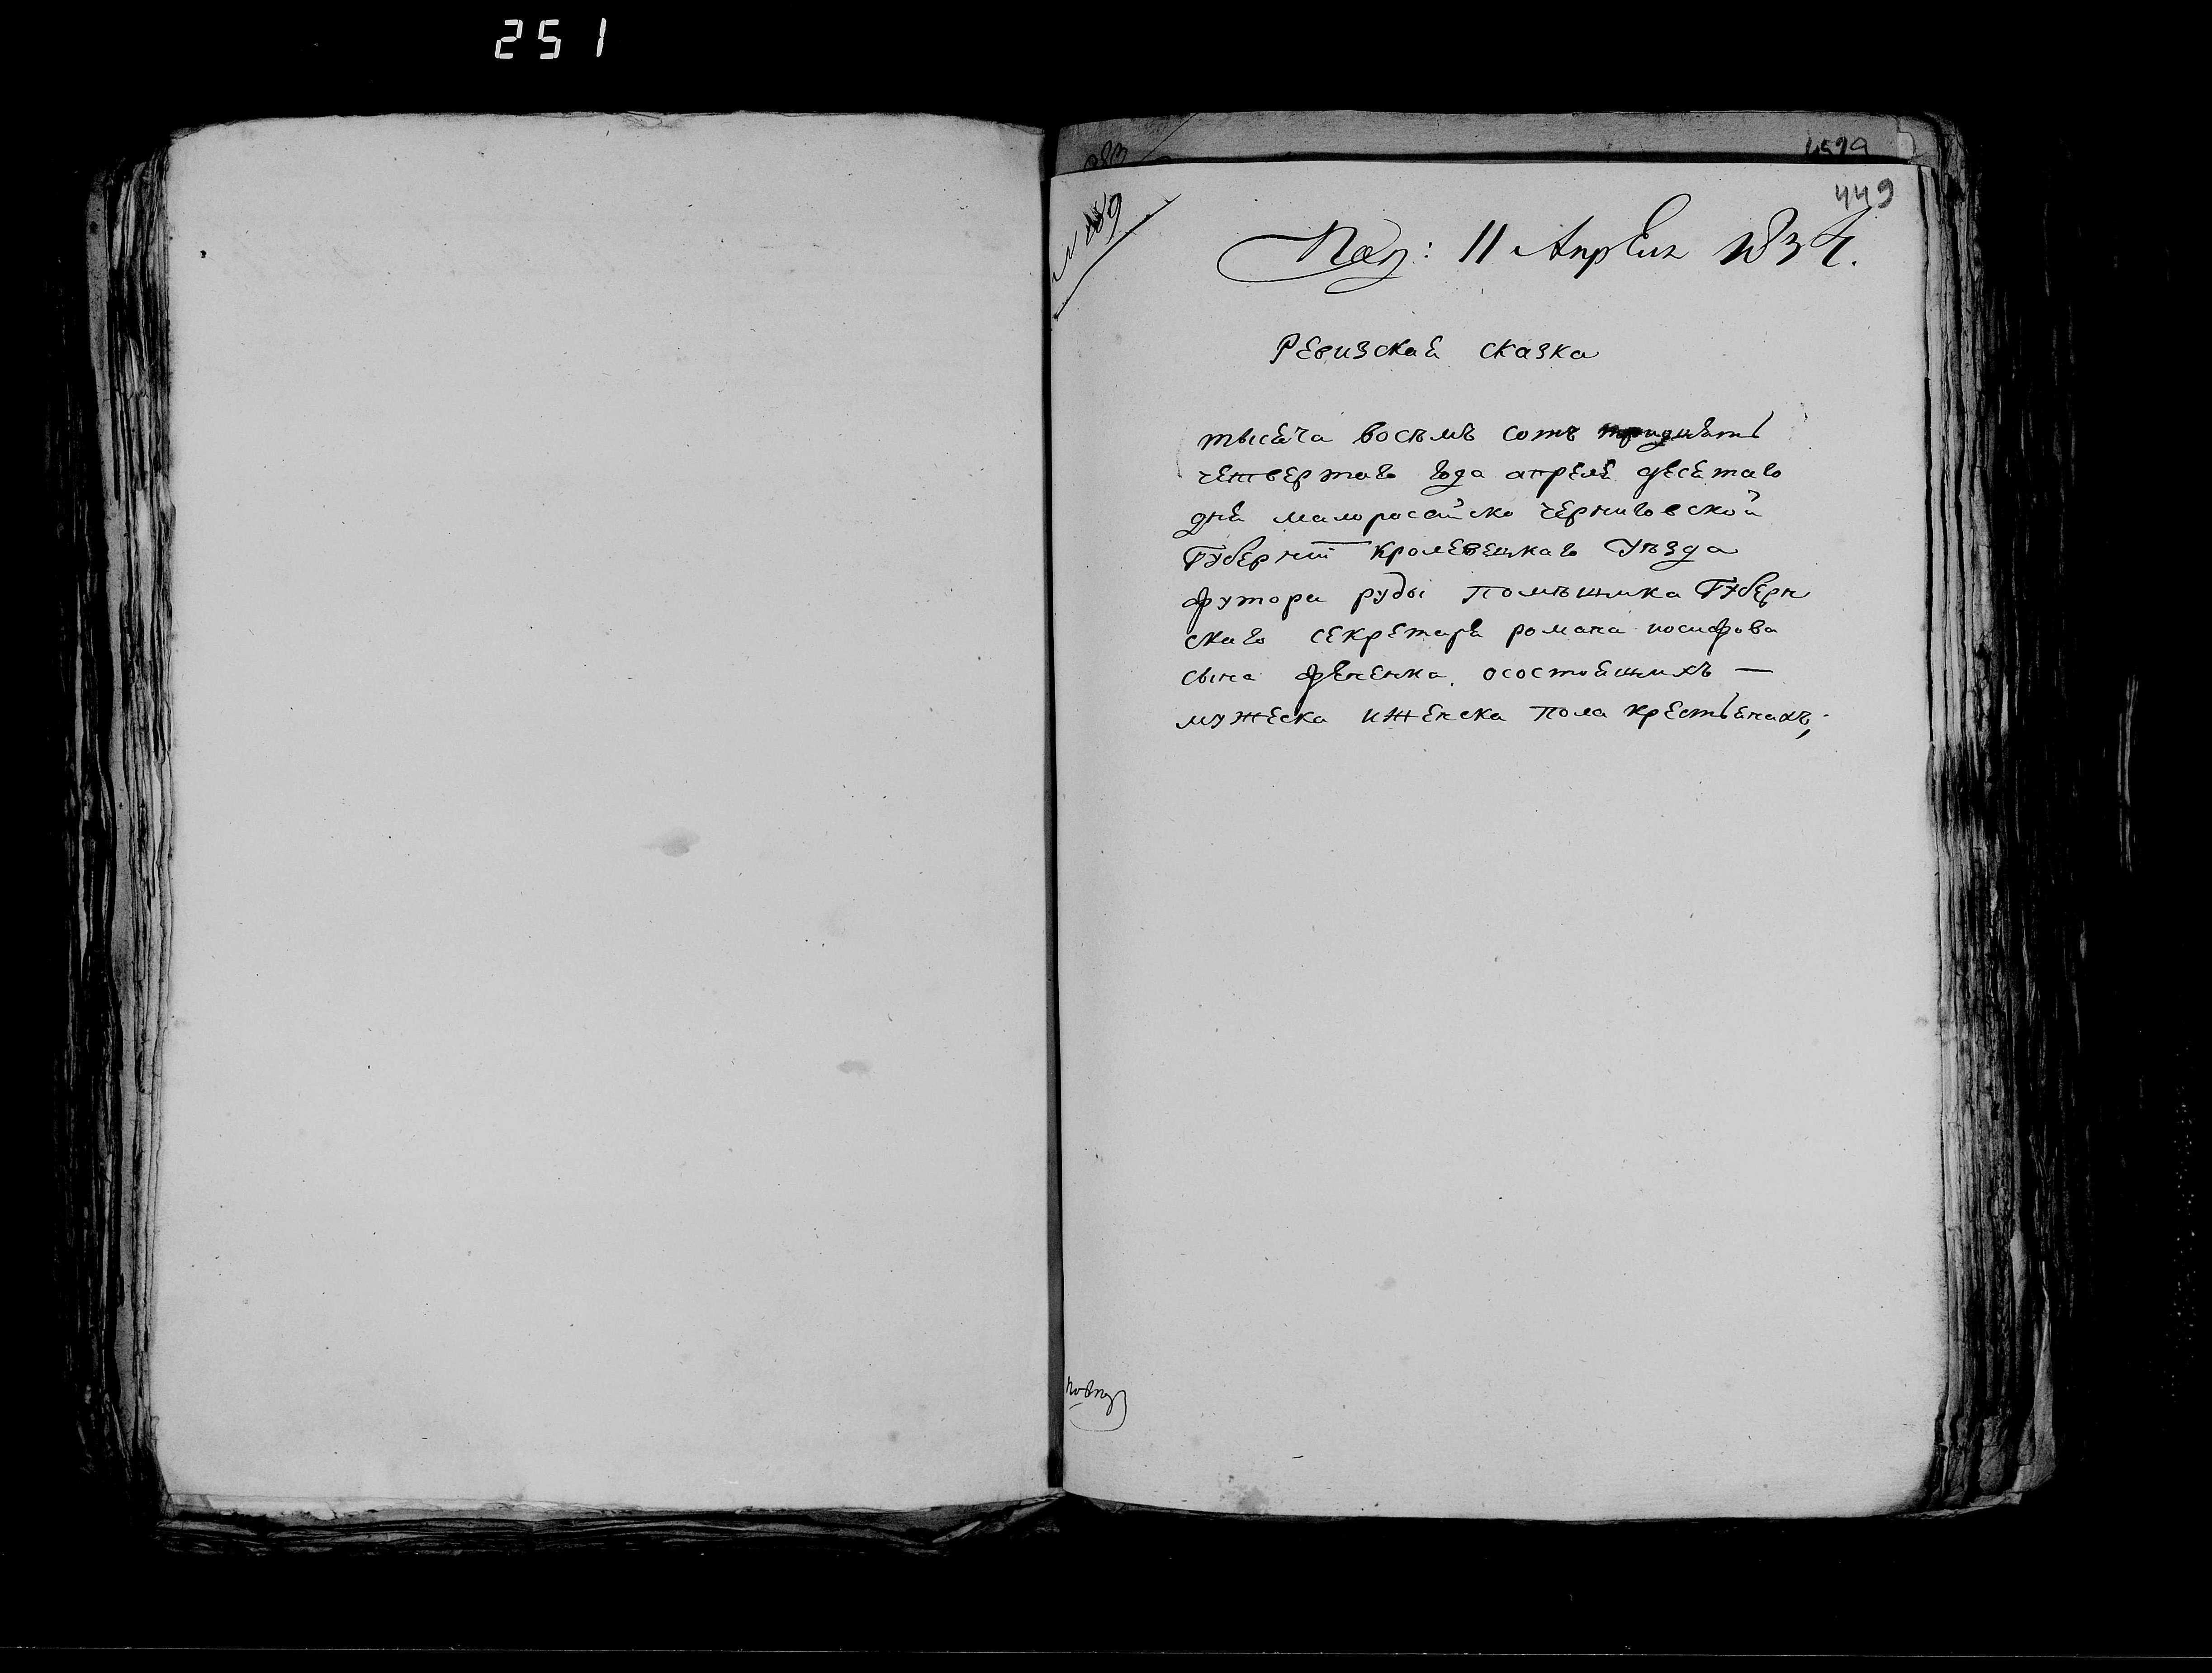 251
449
№ 189
Пол: 11 Апрѣля 1834.
Ревизская сказка
тысяча восемь сотъ тридцять
четвертаго года апреля десятаго
дня малоросайско черниговской
Губерніи кролевецкаго Уѣзда
футора руды помѣщика Губерн
скаго секретаря романа иосифова
сына фененка, осостоящихъ —
мужеска иженска пола крестьянахъ;